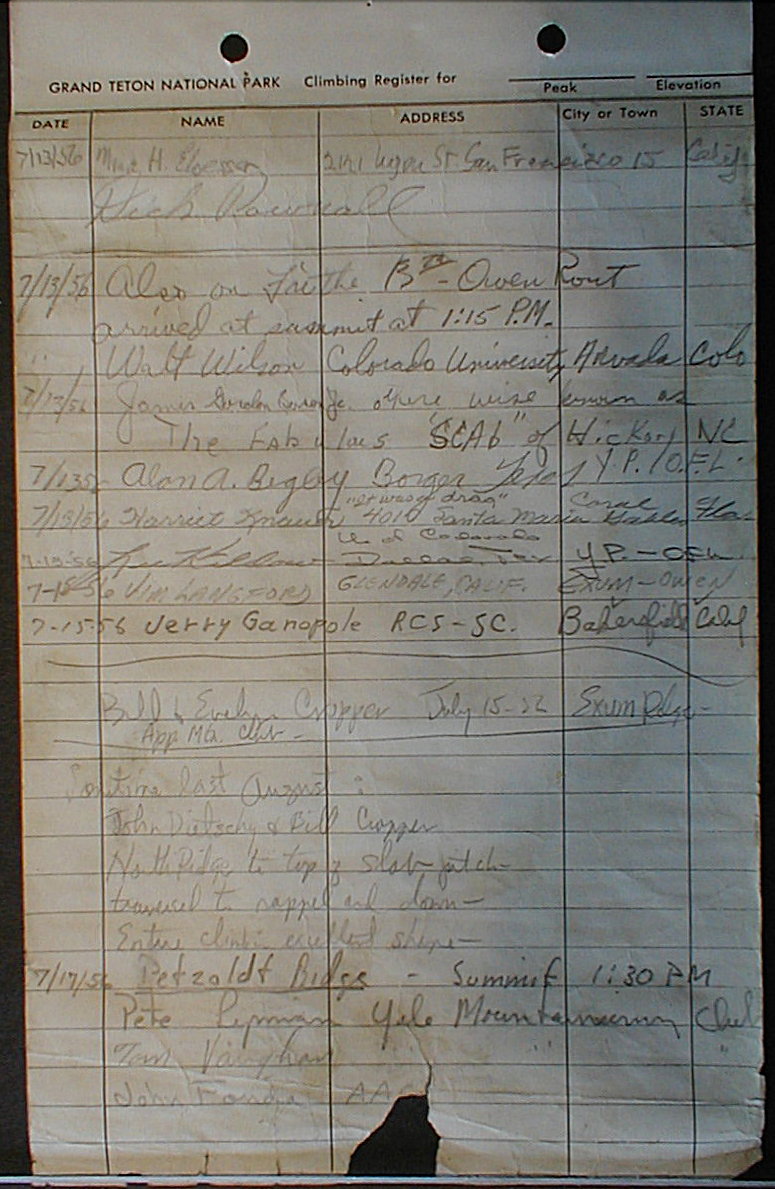 GRAND TETON NATIONAL PARK Climbing Register for
Peak Elevation
DATE NAME ADDRESS City or Town STATE
7/13/56 H. St San Francisco 15 Calif
Dick Pownall
7/13/56 Also on the Owen Rout
arrived at summit at 1:15 P.M.
" Walt Wilson Colorado University Arvada Colo
7/13/56 James Gordon other wise known as
The Fabulous "SCAb" of Hickory NC
7/13/56 Alan A. Begley Borger Texas Y.P./O.F.L.
"it was a drag"
7/13/56 Harriet 4010 Santa Maria Coral Gables Fla
U of Colorado
7-13-56 Dallas, Tex Y.P.-OFL
7-15-56 JIM LANGFORD GLENDALE, CALIF. EXUM-OWEN
7-15-56 Jerry Ganopole RCS-SC. Bakersfield Calif
Bill & Evelyn Cropper July 15- Exum Ridge-
App. Mtn. Club-
Sometime last August:
John Dietschy & Bill Cropper
North Ridge to top of slab pitch-
traversed to rappel and down-
Entire climb in excellent shape-
7/17/56 Petzoldt Ridge - Summit 1:30 PM
Pete Lipman Yale Mountaineering Club
Tom Vaughan " "
John